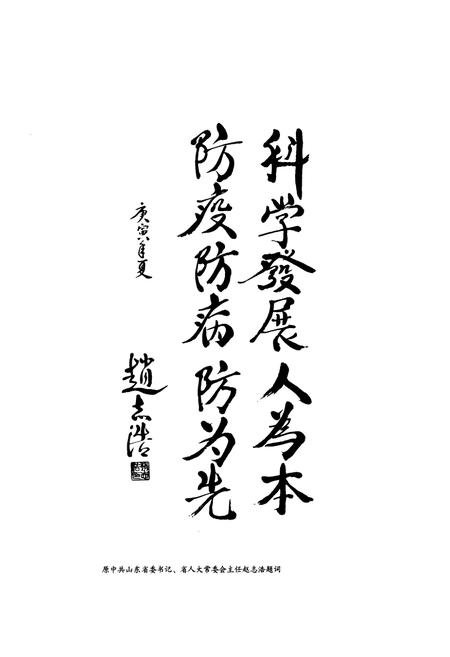 科学發展人為本
防疫防病防为先
庚寅年夏
趙志浩
原中共山东省委书记、省人大常委会主任赵志浩题词